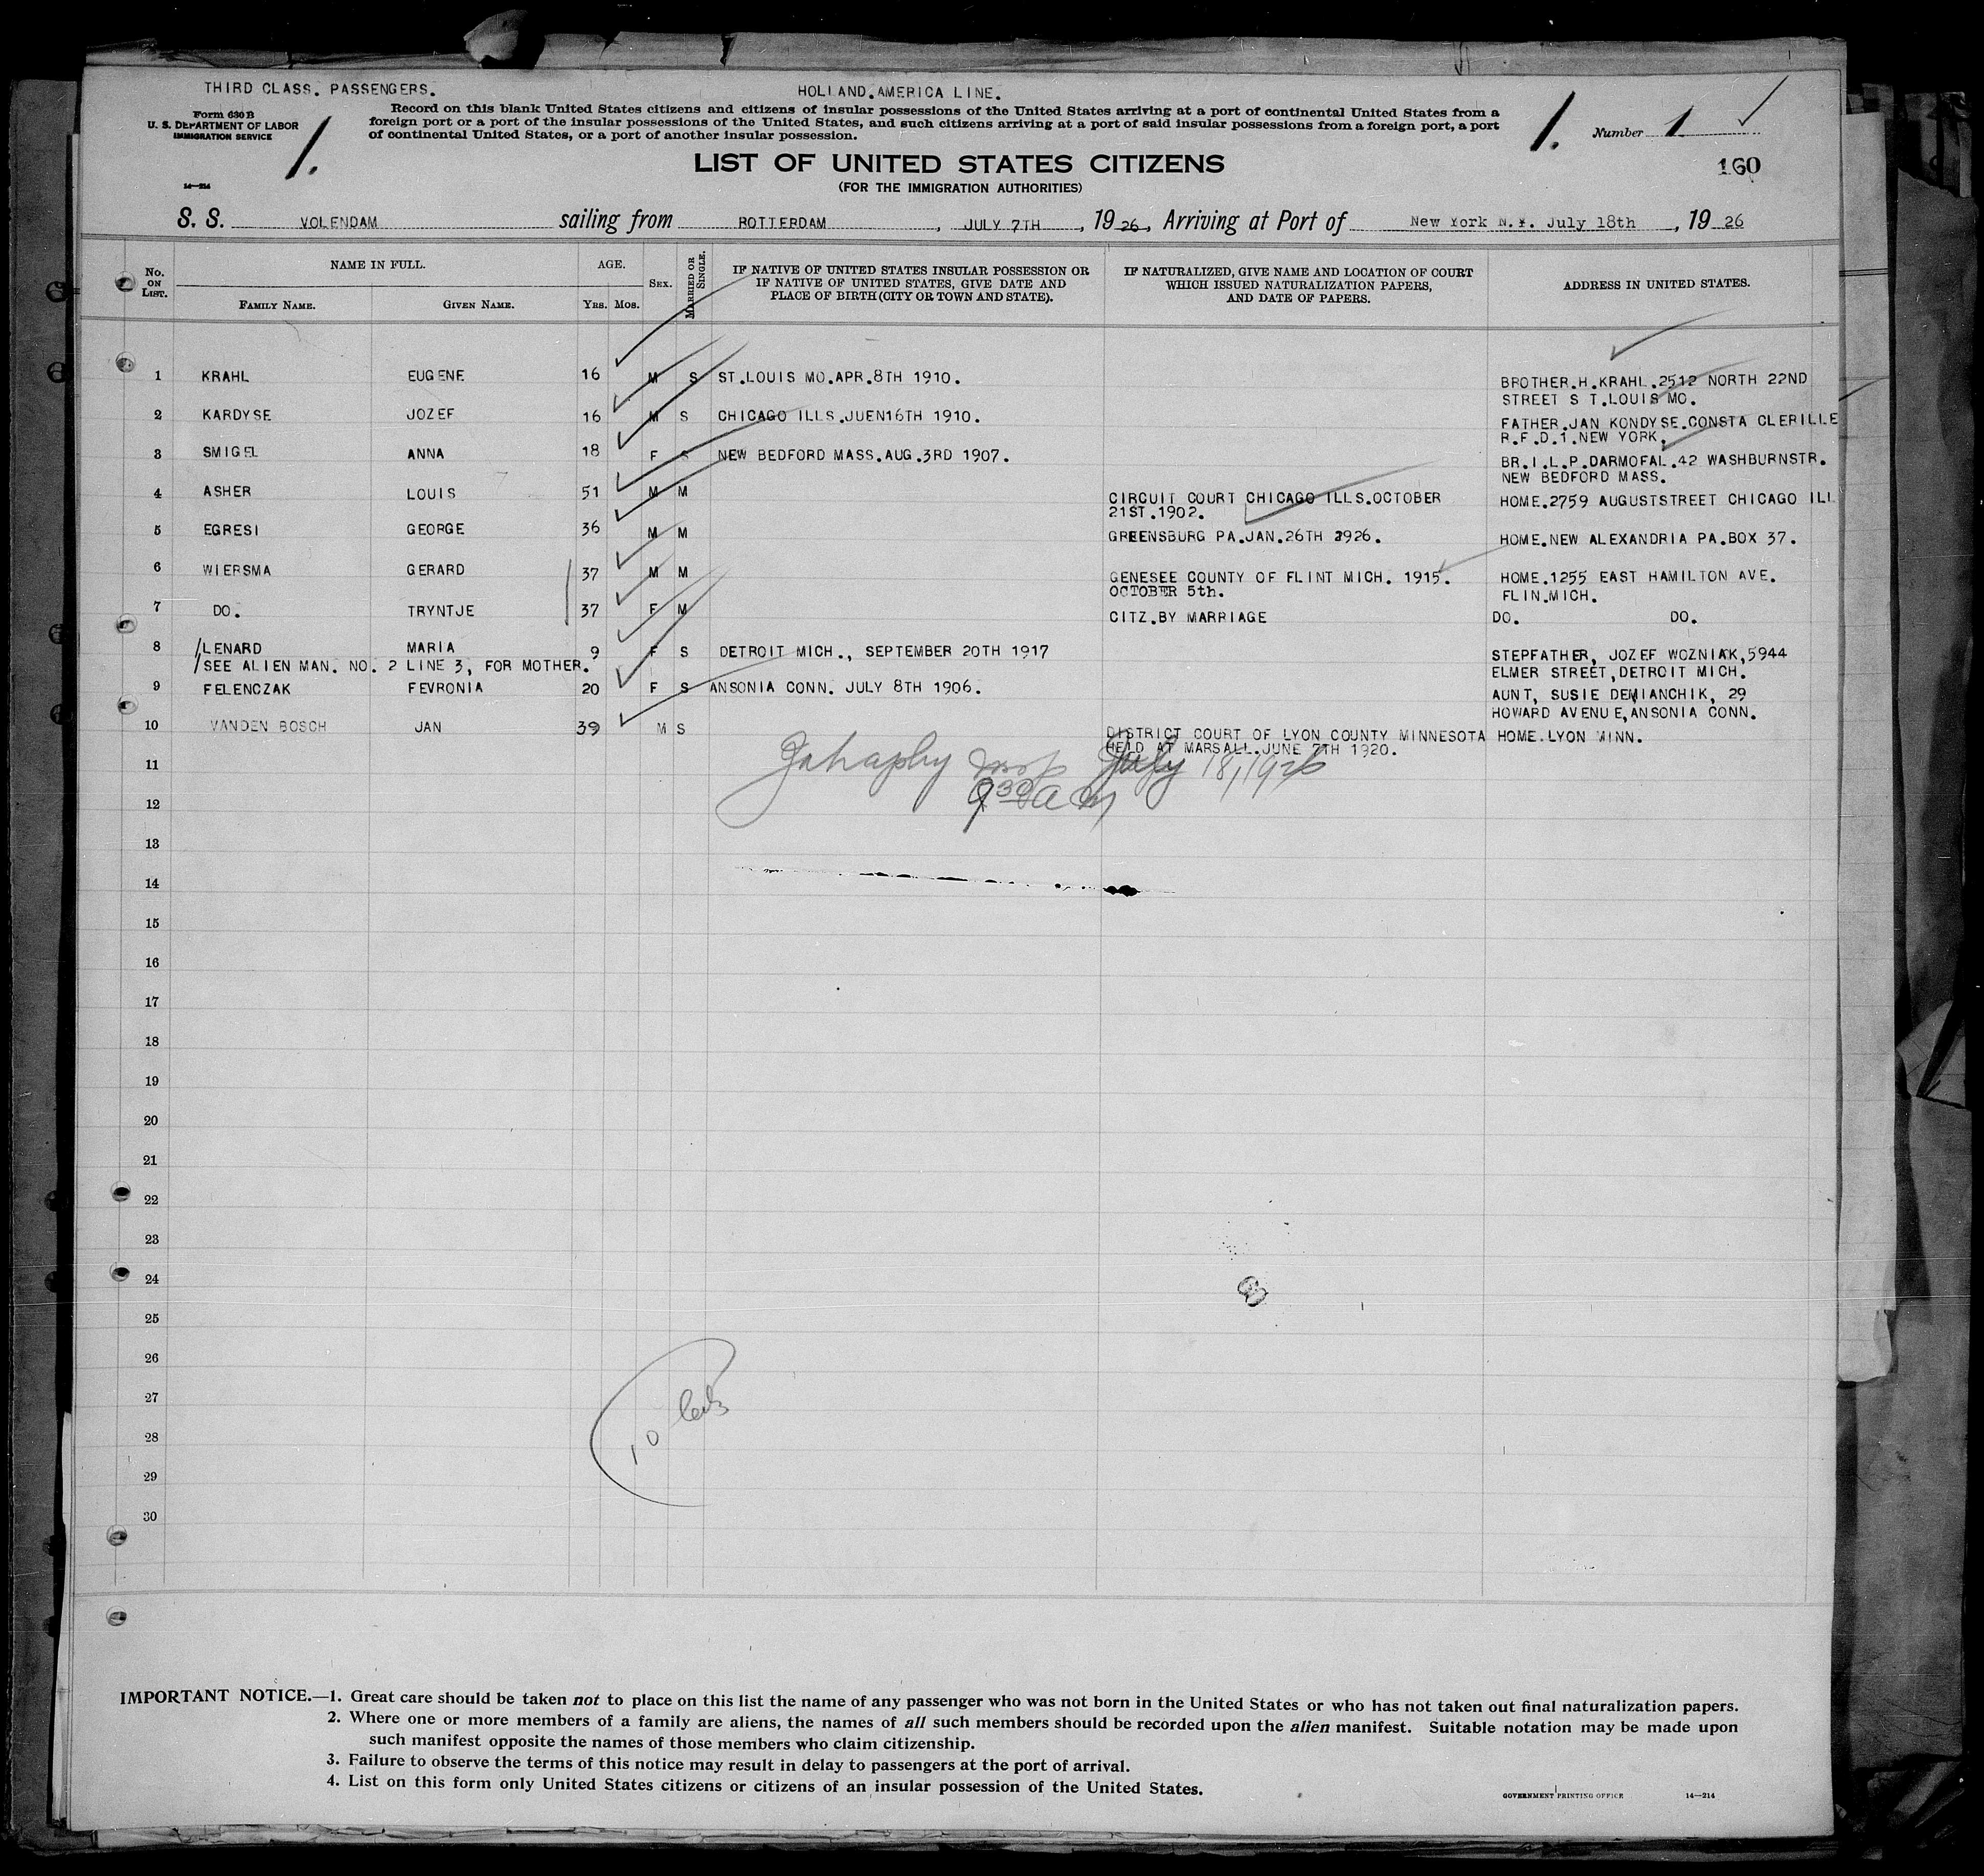 THIRD CLASS. PASSENGERS.
HOLLAND.AMERICA LINE.
Form 630 B
U. S. DEPARTMENT OF LABOR
IMMIGRATION SERVICE
1.
Record on this blank United States citizens and citizens of insular possessions of the United States arriving at a port of continental United States from a
foreign port or a port of the insular possessions of the United States, and such citizens arriving at a port of said insular possessions from a foreign port, a port
of continental United States, or a port of another insular possession.
1.
Number 1
LIST OF UNITED STATES CITIZENS
(FOR THE IMMIGRATION AUTHORITIES)
160
14—214
S. S. VOLENDAM sailing from ROTTERDAM, JULY 7TH, 1926, Arriving at Port of New York N.Y. July 18th, 1926
No. ON LIST.
NAME IN FULL.
FAMILY NAME.
GIVEN NAME.
AGE.
YRS. MOS.
SEX.
MARRIED OR SINGLE.
IF NATIVE OF UNITED STATES INSULAR POSSESSION OR
IF NATIVE OF UNITED STATES, GIVE DATE AND
PLACE OF BIRTH (CITY OR TOWN AND STATE).
IF NATURALIZED, GIVE NAME AND LOCATION OF COURT
WHICH ISSUED NATURALIZATION PAPERS,
AND DATE OF PAPERS.
ADDRESS IN UNITED STATES.
1 KRAHL EUGENE 16 M S ST.LOUIS MO.APR.8TH 1910. BROTHER.H.KRAHL.2512 NORTH 22ND
STREET S T.LOUIS MO.
2 KARDYSE JOZEF 16 M S CHICAGO ILLS.JUEN16TH 1910. FATHER.JAN KONDYSE.CONSTA CLERILLE
R.F.D.1.NEW YORK.
3 SMIGEL ANNA 18 F S NEW BEDFORD MASS.AUG.3RD 1907. BR.I.L.P.DARMOFAL.42 WASHBURNSTR.
NEW BEDFORD MASS.
4 ASHER LOUIS 51 M M CIRCUIT COURT CHICAGO ILLS.OCTOBER HOME.2759 AUGUSTSTREET CHICAGO ILL
21ST.1902.
5 EGRESI GEORGE 36 M M GREENSBURG PA.JAN.26TH 1926. HOME.NEW ALEXANDRIA PA.BOX 37.
6 WIERSMA GERARD 37 M M GENESEE COUNTY OF FLINT MICH. 1915. HOME.1255 EAST HAMILTON AVE.
OCTOBER 5th. FLIN.MICH.
7 DO. TRYNTJE 37 F M CITZ.BY MARRIAGE DO. DO.
8 LENARD MARIA 9 F S DETROIT MICH., SEPTEMBER 20TH 1917 STEPFATHER, JOZEF WOZNIAK,5944
SEE ALIEN MAN. NO. 2 LINE 3, FOR MOTHER. ELMER STREET,DETROIT MICH.
9 FELENCZAK FEVRONIA 20 F S ANSONIA CONN. JULY 8TH 1906. AUNT, SUSIE DEMIANCHIK, 29
HOWARD AVENUE,ANSONIA CONN.
10 VANDEN BOSCH JAN 39 M S DISTRICT COURT OF LYON COUNTY MINNESOTA HOME.LYON MINN.
HELD AT MARSALL.JUNE 7TH 1920.
11 July 18, 1926
12 9 30 a m
13
14
15
16
17
18
19
20
21
22
23
24
25
26
27
28
29
30
10
IMPORTANT NOTICE.—1. Great care should be taken not to place on this list the name of any passenger who was not born in the United States or who has not taken out final naturalization papers.
2. Where one or more members of a family are aliens, the names of all such members should be recorded upon the alien manifest. Suitable notation may be made upon
such manifest opposite the names of those members who claim citizenship.
3. Failure to observe the terms of this notice may result in delay to passengers at the port of arrival.
4. List on this form only United States citizens or citizens of an insular possession of the United States.
GOVERNMENT PRINTING OFFICE 14—214